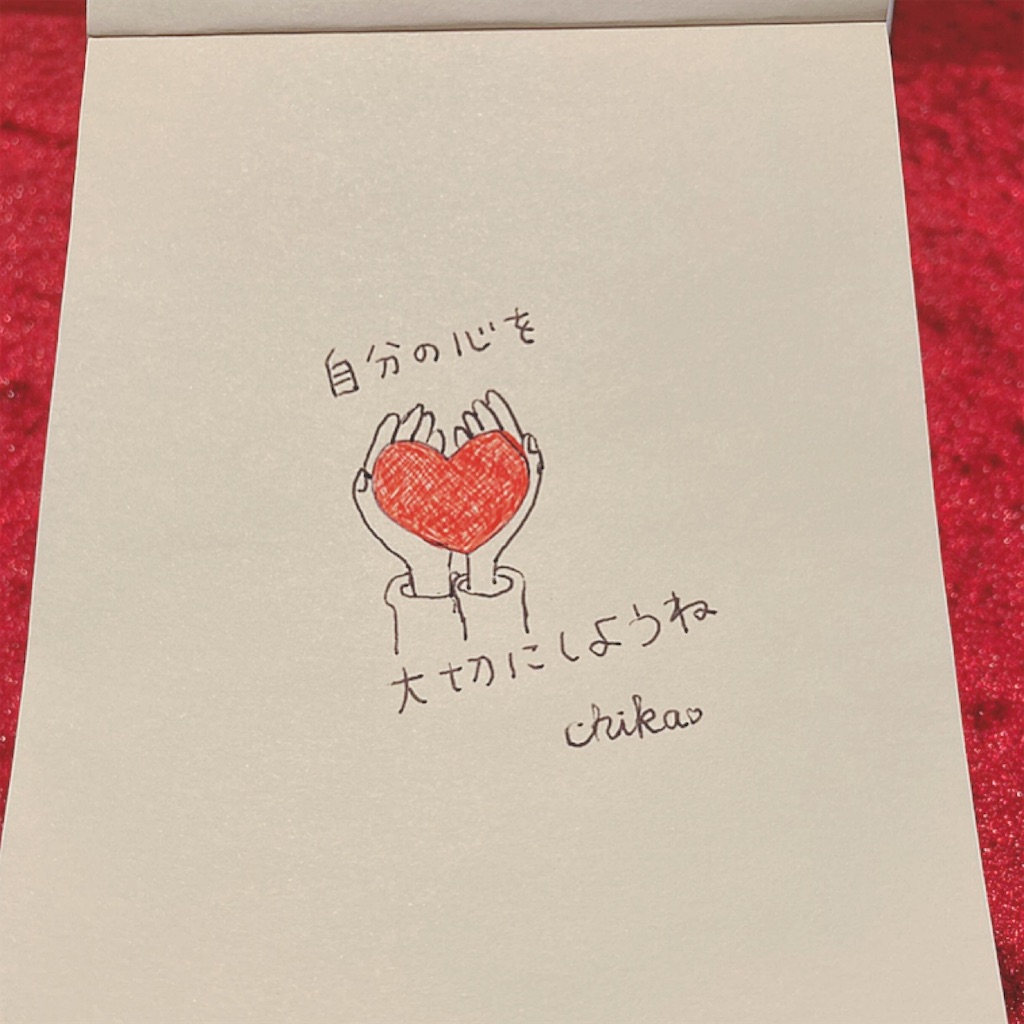 自分の心を
大切にしようね
chika♡